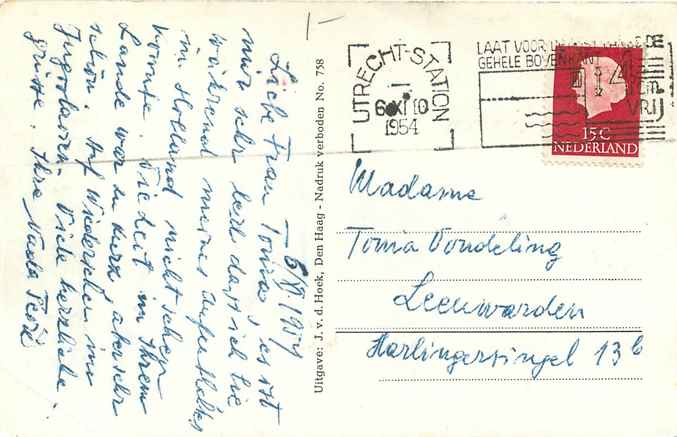 6/XI 1954
Liebe Frau Tonia, es ist
mir sehr leid dass ich Sie
während meines Aufenthaltes
in Holland nicht sehen
konnte. Die Zeit in Ihrem
Lande war zu kurz aber sehr
schön. Auf Wiedersehen in
Jugoslavien. Viele herzliche
Grüsse. Ihre Nada
Uitgave: J. v. d. Hoek, Den Haag - Nadruk verboden No. 758
UTRECHT-STATION
6 XI 10
1954
LAAT VOOR DE
GEHELE BOVENKANT
VRIJ
15 C
NEDERLAND
Madame
Tonia Vondeling
Leeuwarden
Harlingersingel 13 b